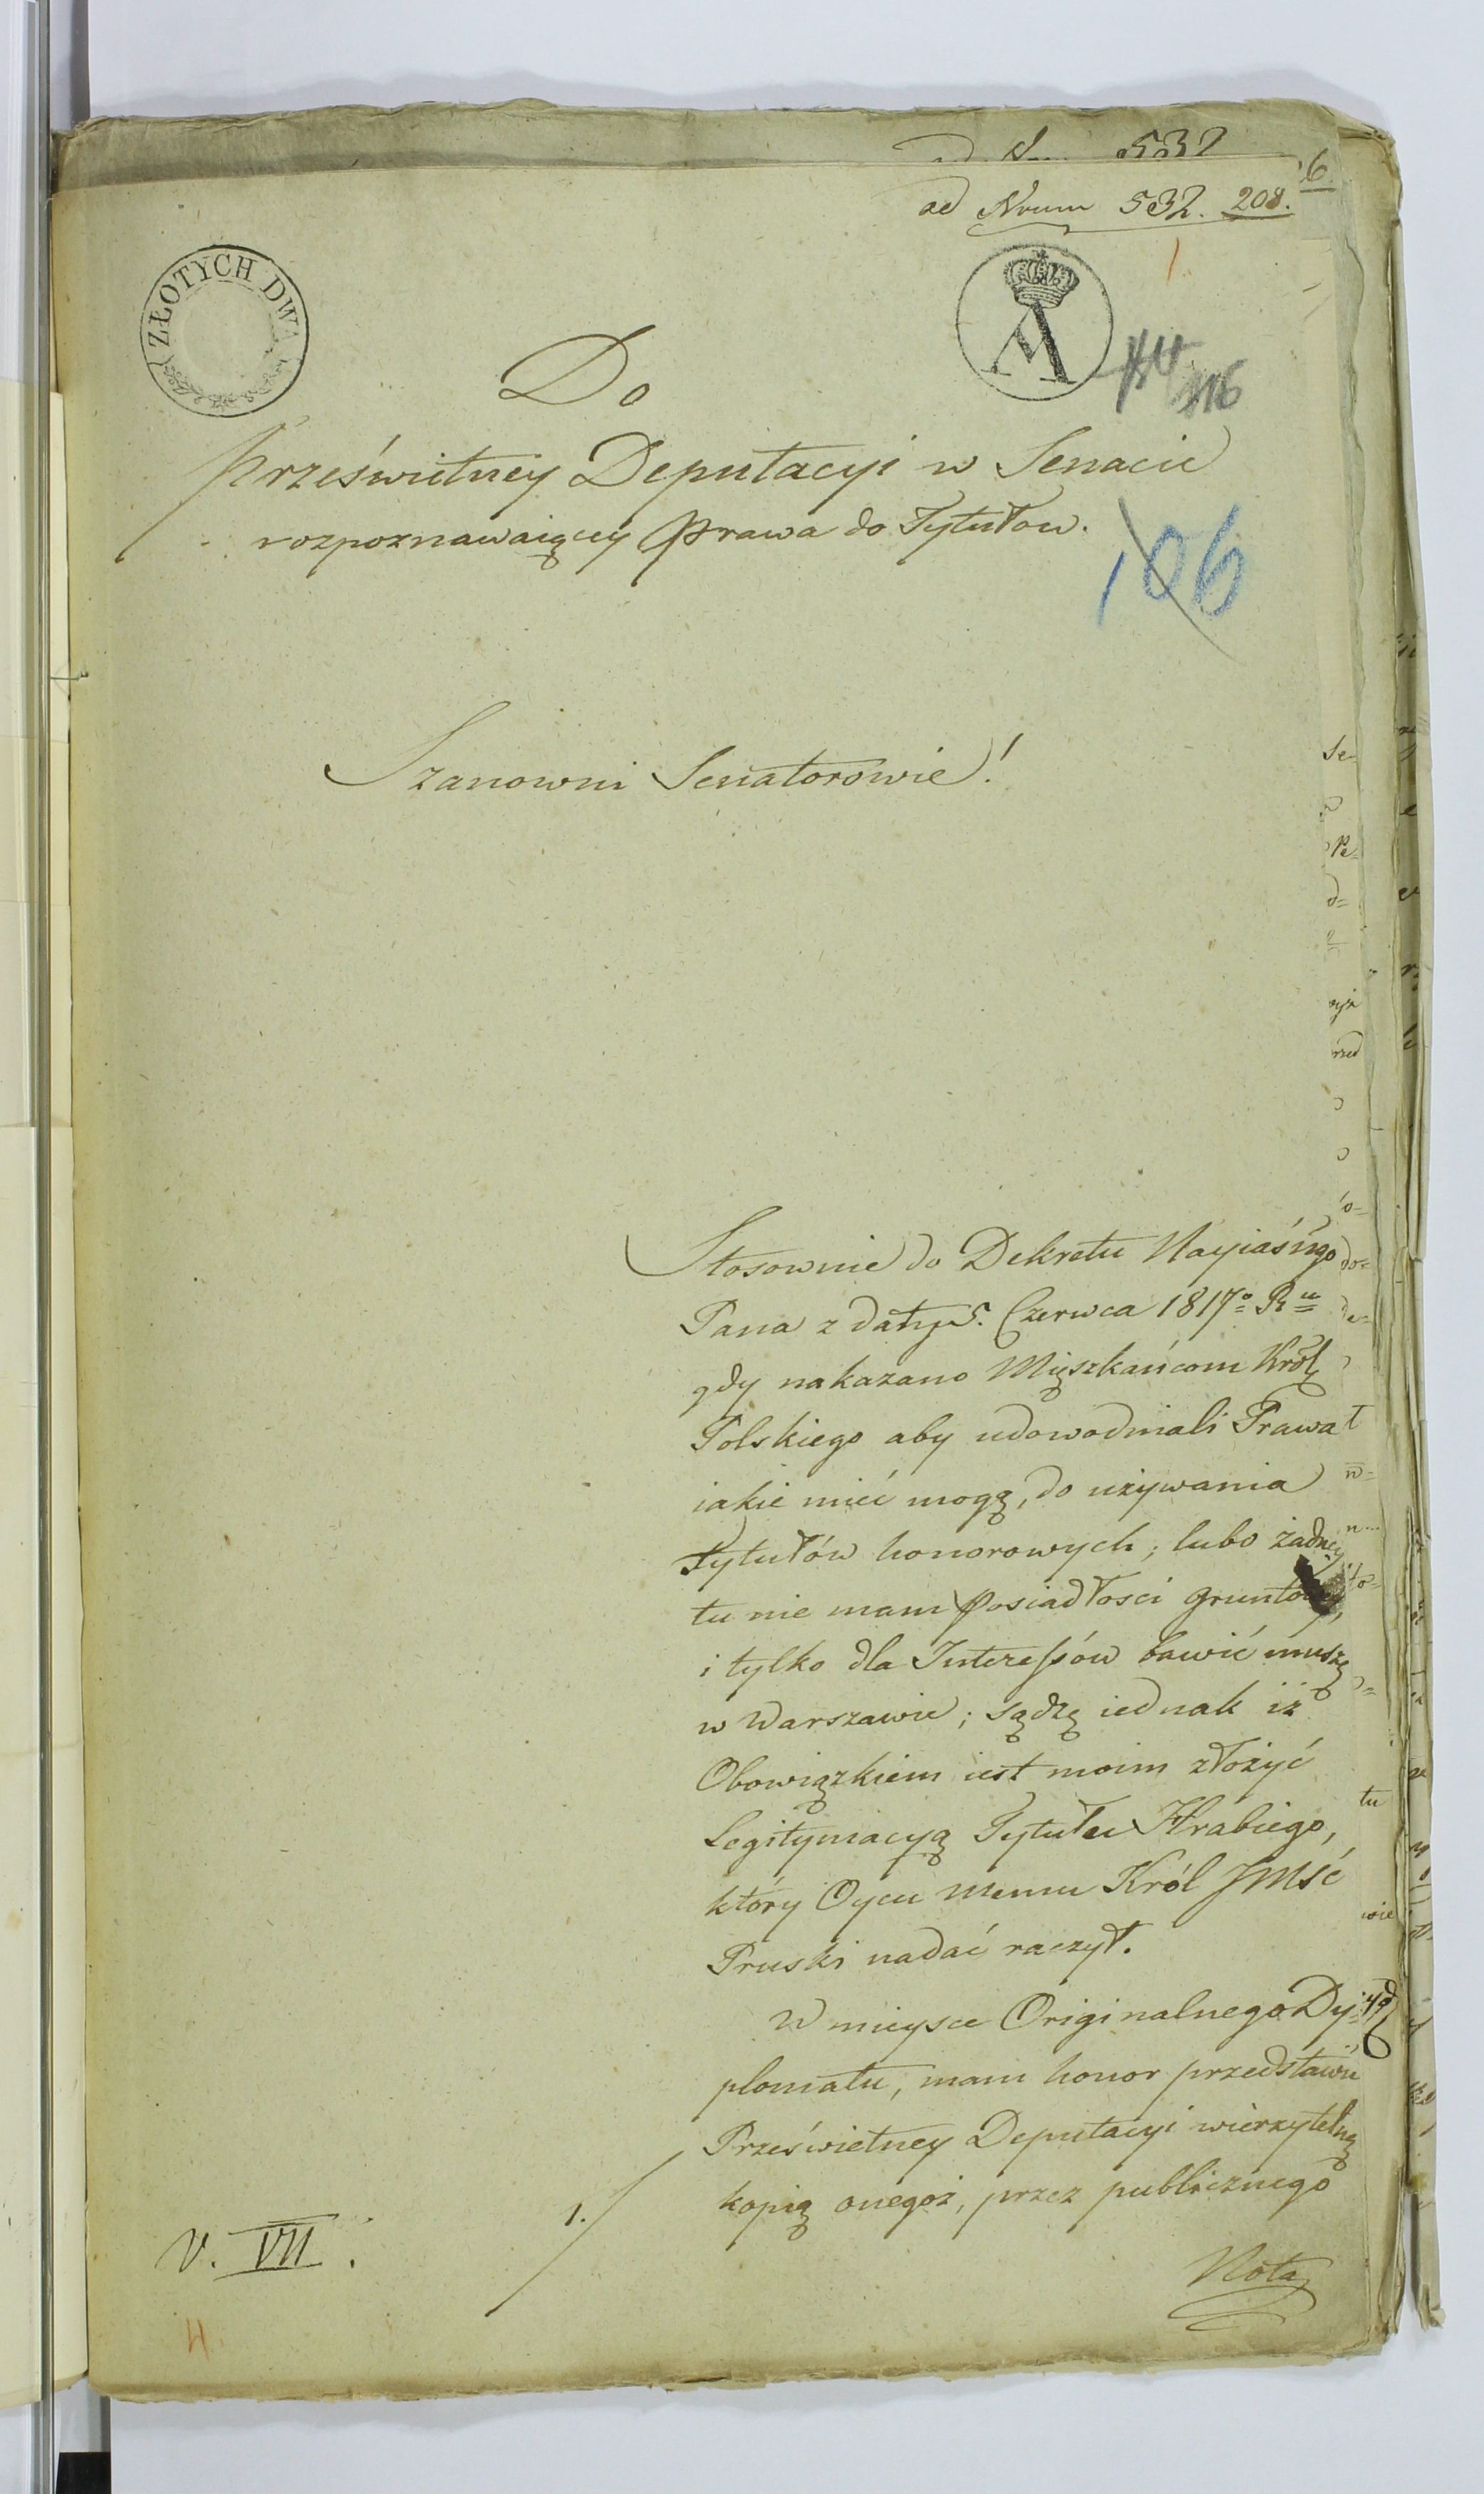 532
6
ad Nrum 532. 208.
1
ZŁOTYCH DWA
A
116
Do
Prześwietney Deputacyi w Senacie
rozpoznawaiącey Prawa do Tytułow.
106
Szanowni Senatorowie!
Stosownie do Dekretu Nayiaśńgo
Pana z daty 5. Czerwca 1817º Ru
gdy nakazano Mięszkańcom Król
Polskiego aby udowodniali Prawa
iakie mieć mogą, do używania
Tytułów honorowych; lubo żadney
tu nie mam Posiadłości gruntowey,
i tylko dla Interessów bawić muszę
w Warszawie; sądzę iednak iż
Obowiązkiem iest moim złożyć
Legitymacyą Tytułu Hrabiego,
który Oycu memu Król JMść
Pruski nadać raczył.
W mieysce Originalnego Dy-
plomatu, mam honor przedstawić
Prześwietney Deputacyi wierzytelną
1./ kopią onegoż, przez publicznego
V. VII.
Nota
4